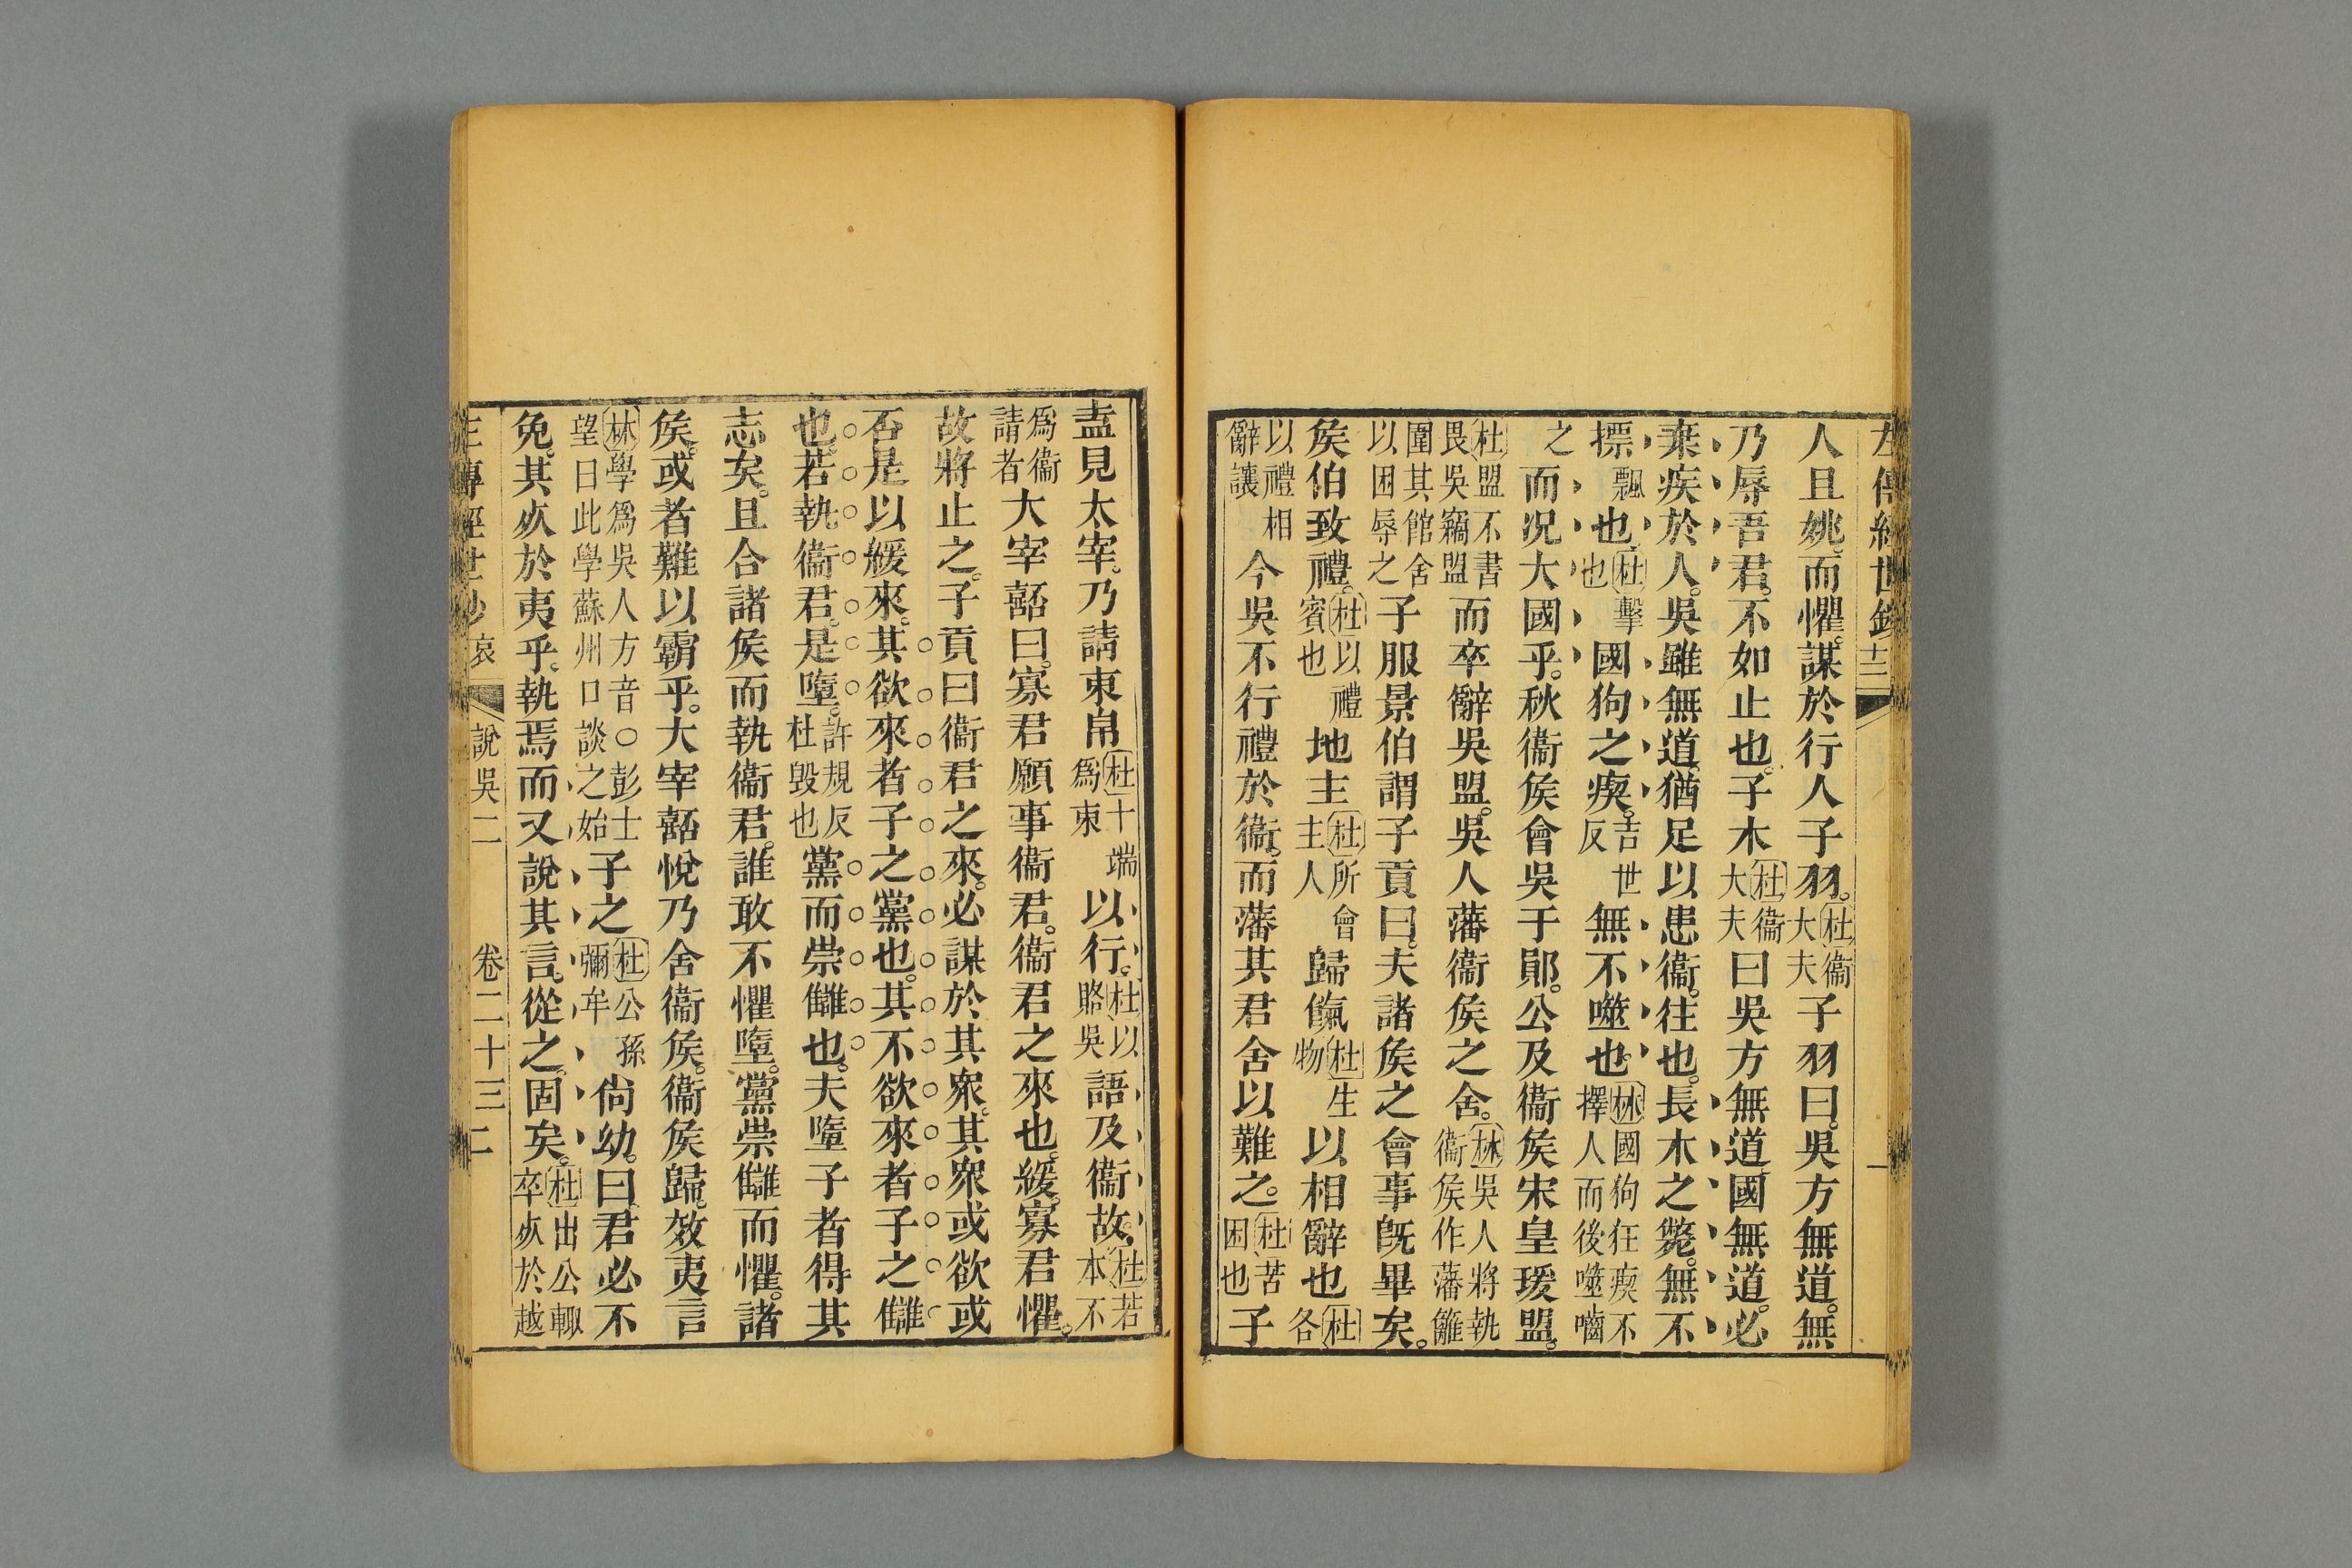 左傳經世鈔 十二 一
人且姚而懼謀於行人子羽杜衞大夫子羽曰吳方無道無
乃辱吾君不如止也子木杜衞大夫曰吳方無道國無道必
棄疾於人吳雖無道猶足以患衞往也長木之斃無不
摽飄也杜擊也國狗之瘈吉世反無不噬也林國狗狂瘈不擇人而後噬嚙
之而况大國乎秋衞矦會吳于鄖公及衞矦宋皇瑗盟
杜盟不書畏吳竊盟而卒辭吳盟吳人藩衞矦之舍林吳人將執衞矦作藩籬
圍其館舍以困辱之子服景伯謂子貢曰夫諸矦之會事旣畢矣
矦伯致禮杜以禮賓也地主杜所會主人歸餼杜生物以相辭也杜各
以禮相辭讓今吳不行禮於衞而藩其君舍以難之杜苦困也子
盍見太宰乃請束帛杜十端爲束以行杜以賂吳語及衞故杜若本不
爲衞請者大宰嚭曰寡君願事衞君衞君之來也緩寡君懼
故將止之子貢曰衞君之來必謀於其衆其衆或欲或
否是以緩來其欲來者子之黨也其不欲來者子之讎
也若執衞君是墮許規反杜毀也黨而崇讎也夫墮子者得其
志矣且合諸矦而執衞君誰敢不懼墮黨崇讎而懼諸
矦或者難以霸乎大宰嚭悅乃舍衞矦衞矦歸效夷言
林學爲吳人方音○彭士望曰此學蘇州口談之始子之杜公孫彌牟尙幼曰君必不
免其𣦸於夷乎執焉而又說其言從之固矣杜出公輒卒𣦸於越
左傳經世鈔 哀 說吳二 卷二十三 二